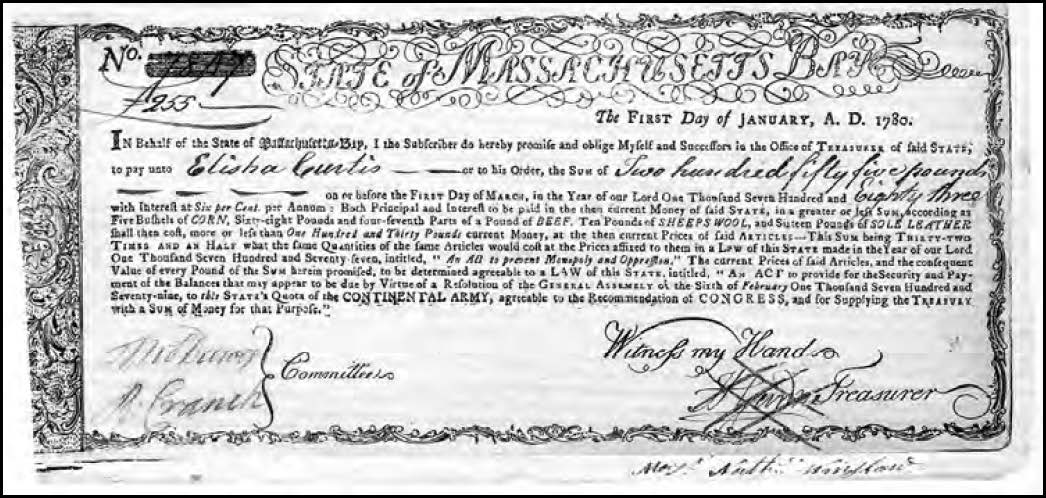 No. STATE of MASSACHUSETTS BAY
£255
The FIRST Day of JANUARY, A. D. 1780.
IN Behalf of the State of Massachusetts-Bay, I the Subscriber do hereby promise and oblige Myself and Successors in the Office of TREASURER of said STATE,
to pay unto Elisha Curtis or to his Order, the SUM of Two hundred fifty five pounds
on or before the FIRST Day of MARCH, in the Year of our Lord One Thousand Seven Hundred and Eighty three
with Interest at Six per Cent. per Annum: Both Principal and Interest to be paid in the then current Money of said STATE, in a greater or less SUM, according as
Five Bushels of CORN, Sixty-eight Pounds and four-seventh Parts of a Pound of BEEF, Ten Pounds of SHEEPS WOOL, and Sixteen Pounds of SOLE LEATHER
shall then cost, more or less than One Hundred and Thirty Pounds current Money, at the then current Prices of said ARTICLES—This SUM being THIRTY-TWO
TIMES AND AN HALF what the same Quantities of the same Articles would cost at the Prices affixed to them in a LAW of this STATE made in the Year of our Lord
One Thousand Seven Hundred and Seventy-seven, intitled, "An ACT to prevent Monopoly and Oppression." The current Prices of said Articles, and the consequent
Value of every Pound of the SUM herein promised, to be determined agreeable to a LAW of this STATE, intitled, "AN ACT to provide for the Security and Pay-
ment of the Balances that may appear to be due by Virtue of a Resolution of the GENERAL ASSEMBLY of the Sixth of February One Thousand Seven Hundred and
Seventy-nine, to this STATE'S Quota of the CONTINENTAL ARMY, agreeable to the Recommendation of CONGRESS, and for Supplying the TREASURY
with a SUM of Money for that Purpose."
Witness my Hand
Committee
Treasurer
R. Cranch